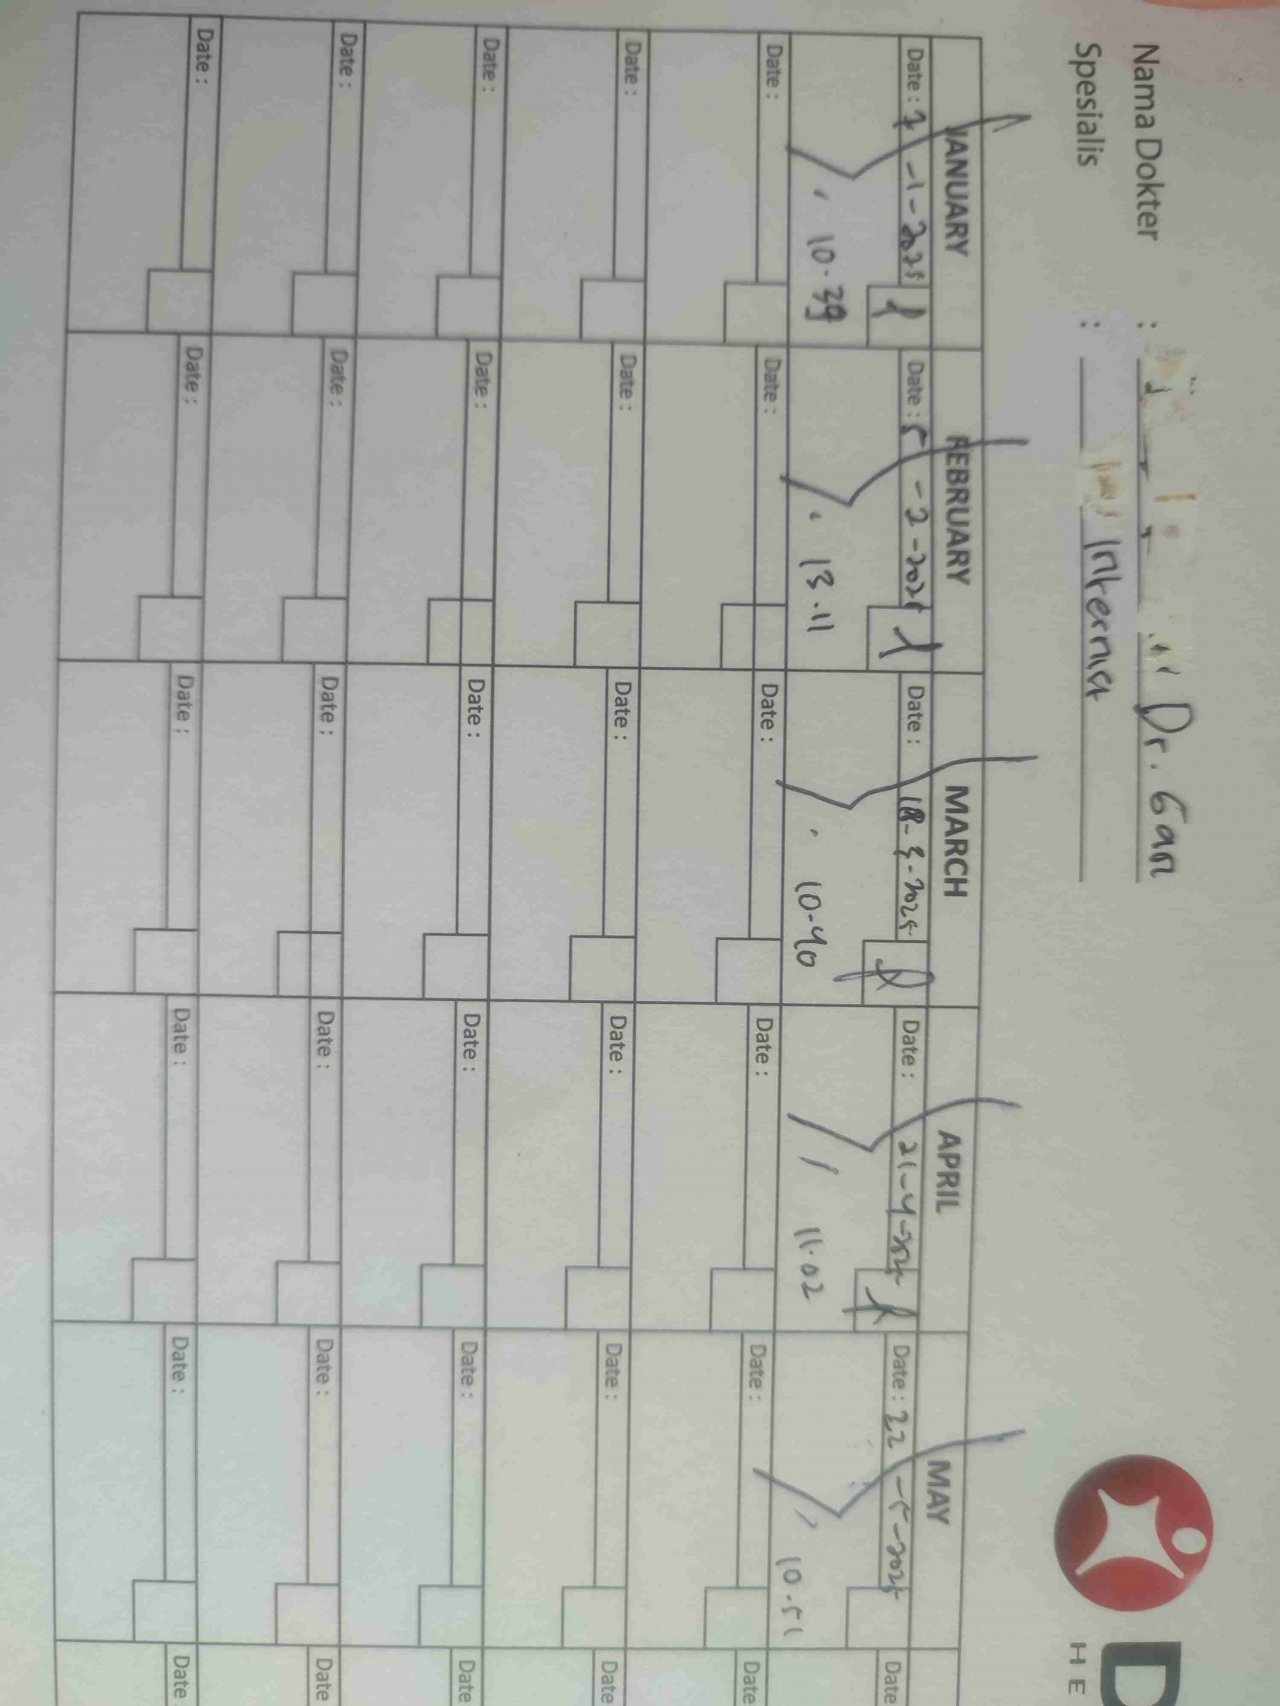 Nama Dokter : Dr. Gan
Spesialis : Interna
D
HE
JANUARY FEBRUARY MARCH APRIL MAY
Date : 7-1-2025 Date : 5-2-2025 Date : 18-3-2025 Date : 21-4-2025 Date : 22-5-2025 Date
10.39 13.11 10.40 11.02 10.51
Date : Date : Date : Date : Date : Date
Date : Date : Date : Date : Date : Date
Date : Date : Date : Date : Date : Date
Date : Date : Date : Date : Date : Date
Date : Date : Date : Date : Date : Date